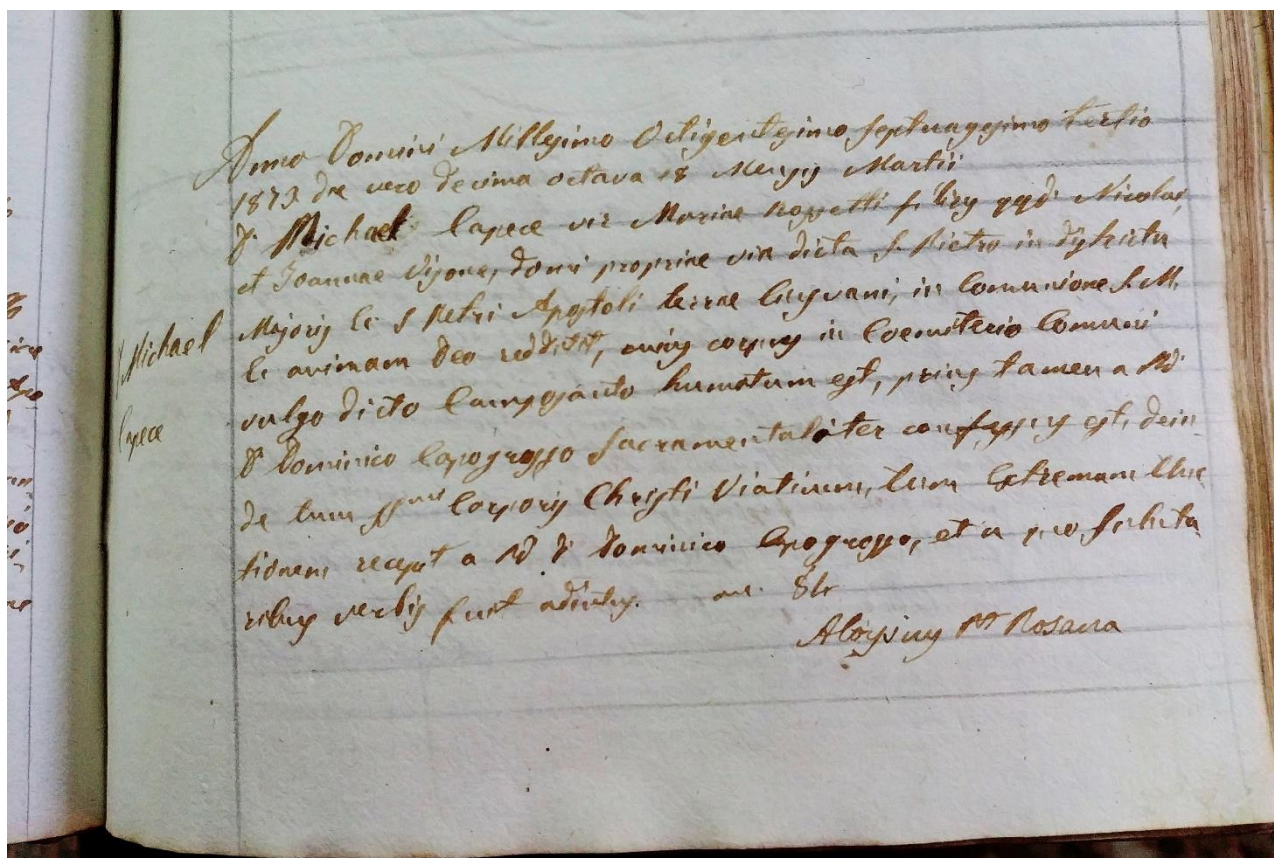 Anno Domini Millesimo Octigentesimo septuagesimo tertio
1873 die vero decima octava 18 Mensis Martii
D. Michael Capece vir Mariae Rossetti filius qqd. Nicolai,
et Joannae Visone, domi propriae via dicta S. Pietro in districtu
Majoris Ec. S. Petri Apostoli terrae Cusani, in Comunione S. M.
D. Michael
Ec. animam Deo reddidit, cuius corpus in Coemiterio Comuni
vulgo dicto Camposanto humatum est, prius tamen a Rd.
Capece
D. Dominico Capogrosso Sacramentaliter confessus est, dein
de tum SSmi Corporis Christi Viaticum, tum Extremam Unc
tionem recepit a Rd. D. Dominico Capogrosso, et a saluta
ribus verbis fuit adiutus. an. 84
Aloysius Rosana